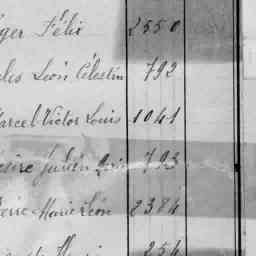 ger Félix 2550
les Léon Célestin 792
arcel Victor Louis 1041
sire Julien 793
ierre Marie Léon 2384
254